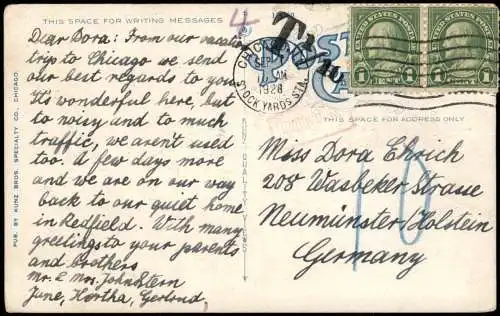 THIS SPACE FOR WRITING MESSAGES
Dear Dora: From our vacation
trip to Chicago we send
our best regards to you
It's wonderful here, but
to noisy and to much
traffic, we aren't used
too. A few days more
and we are on our way
back to our quiet home
in Redfield. With many
greetings to your parents
and brothers
Mr. & Mrs. John Stern
June, Hertha, Gertrud,
PUB. BY KUNZ BROS. SPECIALTY CO., CHICAGO.
4
T
CHICAGO
SEP
AM
1928
STOCK YARDS STA.
UNITED STATES POSTAGE
1 1
UNITED STATES POSTAGE
1 1
THIS SPACE FOR ADDRESS ONLY
Miss Dora Ehrich
208 Wasbeker Strasse
Neumünster/Holstein
Germany
10